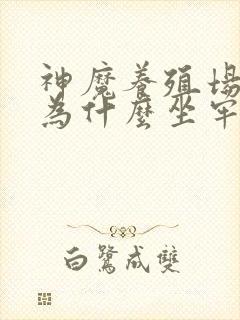 神魔養殖場
為什麼坐牢
白鷺成雙